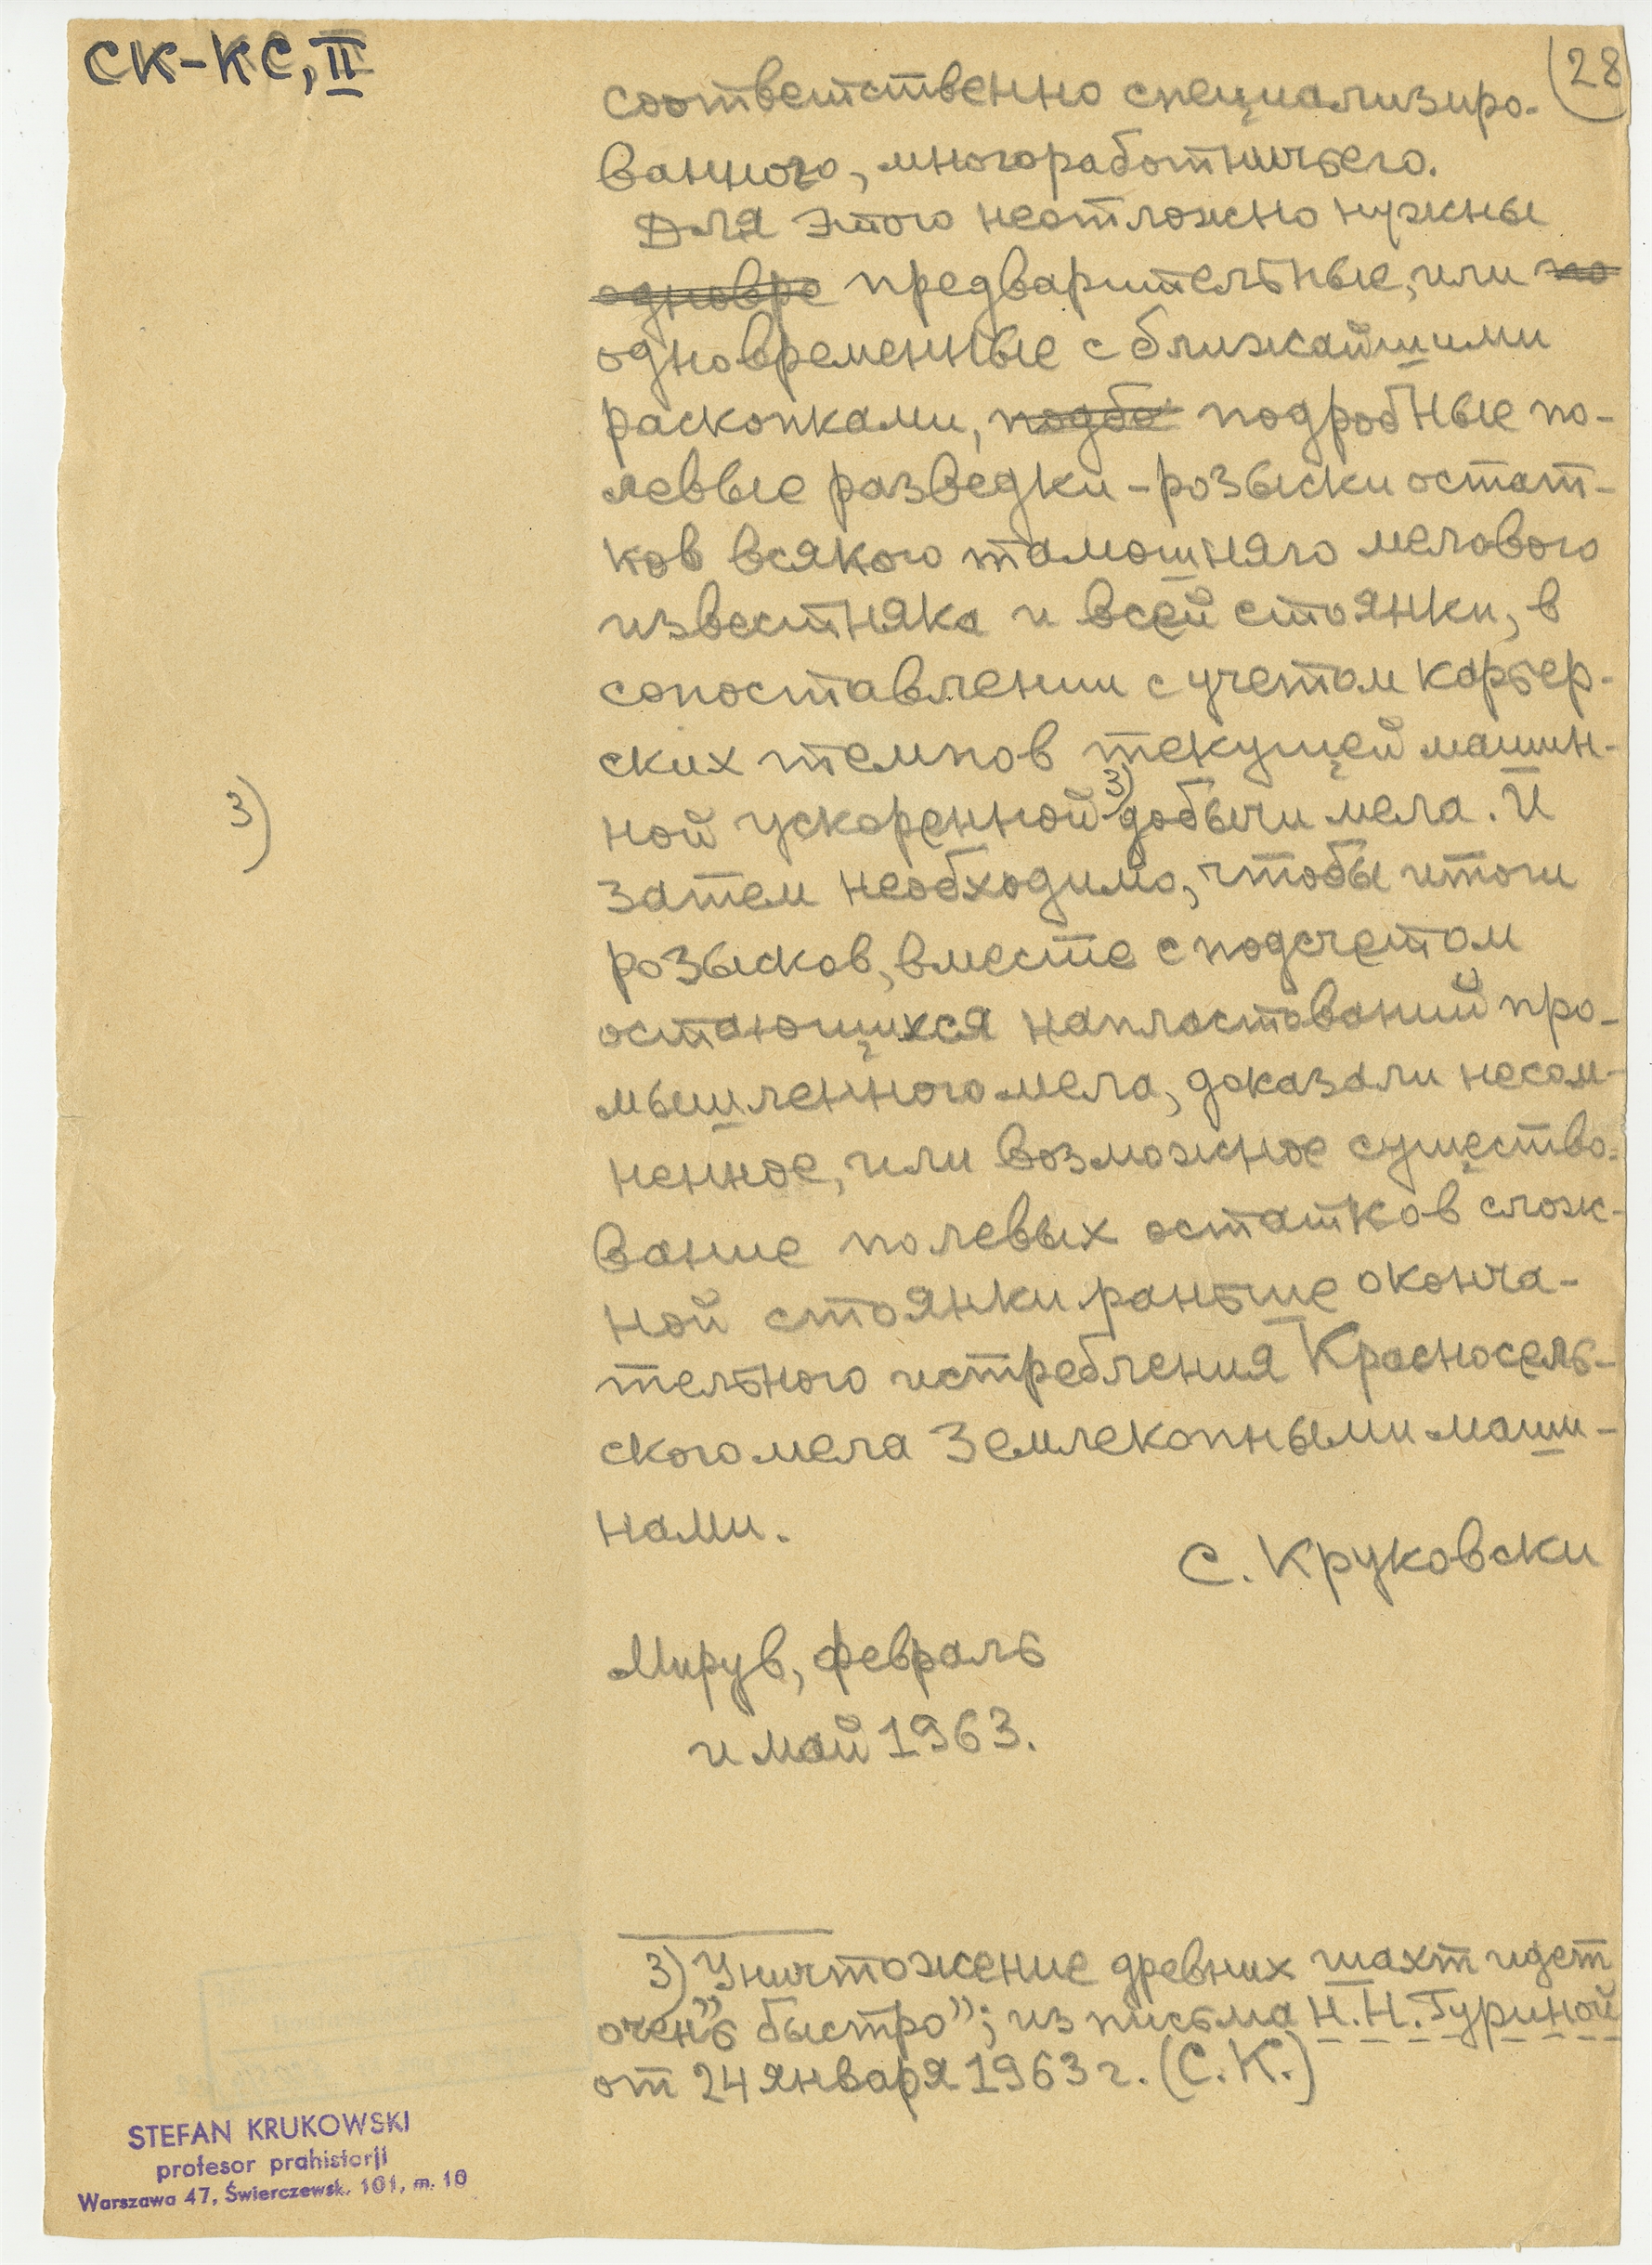 СК-КС, II
28
соответственно специализиро-
ванного, многоработничьего.
Для этого неотложно нужны
одновре предварительные, или по
одновременные с ближайшими
раскопками, подбо подробные по-
левые разведки - розыски остат-
ков всякого тамошняго мелового
известняка и всей стоянки, в
сопоставлении с учетом карьер-
ских темпов текущей машин-
ной ускоренной 3) добычи мела. И
3)
затем необходимо, чтобы итоги
розысков, вместе с подсчетом
остающихся напластований про-
мышленного мела, доказали несом-
ненное, или возможное существо-
вание полевых остатков слож-
ной стоянки раньше оконча-
тельного истребления Красносель-
ского мела землекопными маши-
нами.
С. Круковски
Мирув, февраль
и май 1963.
3) Уничтожение древних шахт идет
очень „быстро”; из письма Н.Н. Гуриной
от 24 января 1963 г. (С.К.)
STEFAN KRUKOWSKI
profesor prahistorji
Warszawa 47, Świerczewsk. 101, m. 10